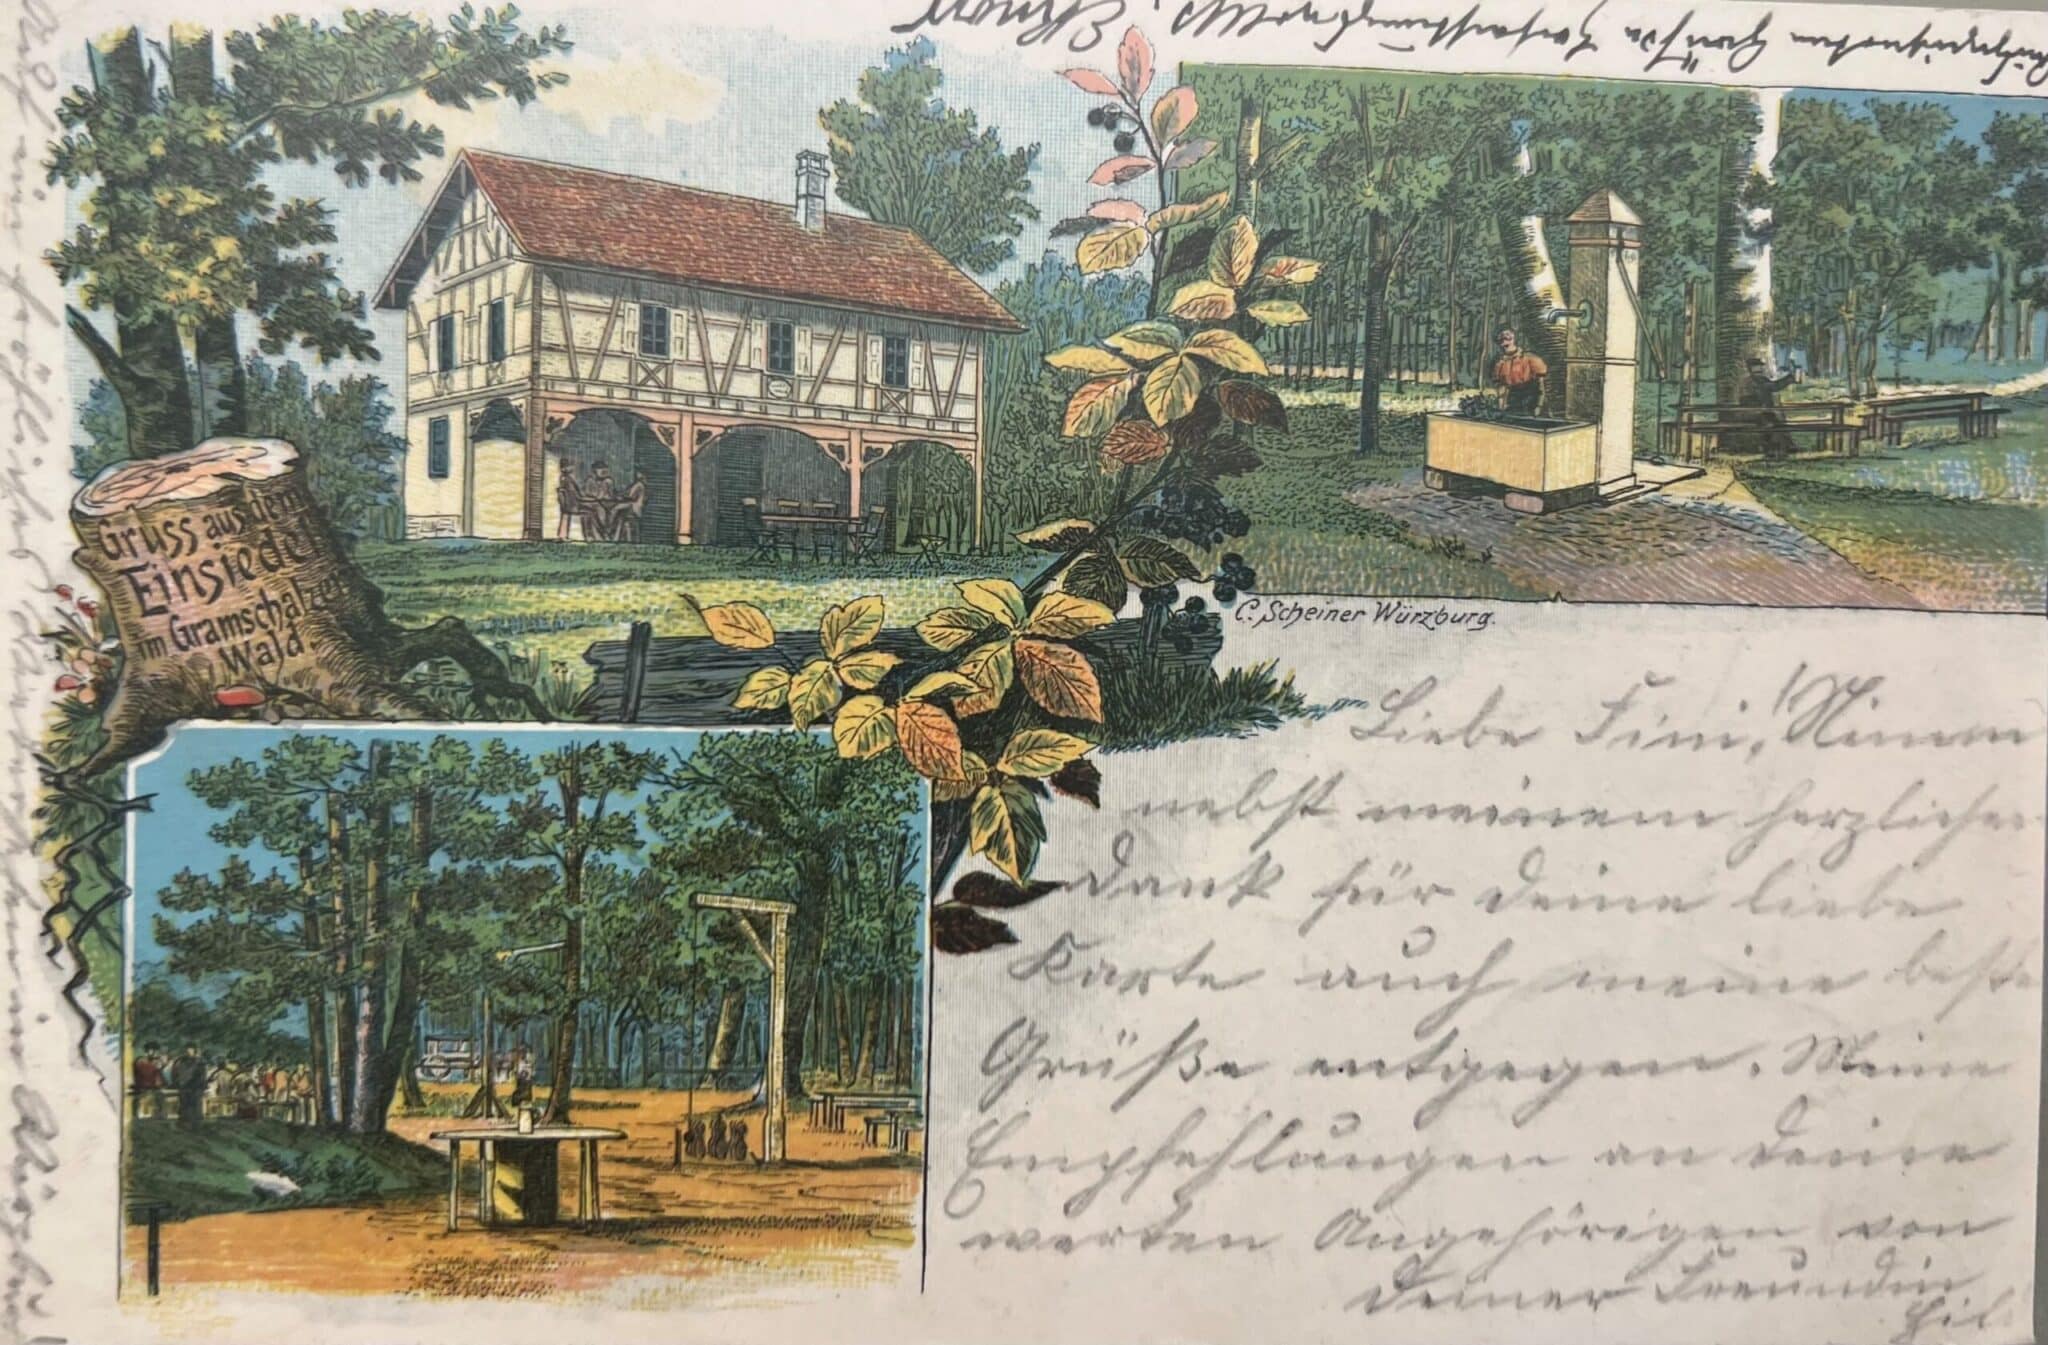 Gruss aus dem
Einsiedel
im Gramschatzer
Wald.
C. Scheiner Würzburg.
Liebe Fini! Nimm
nebst meinem herzlichen
Dank für deine liebe
Karte auch meine beste
Grüße entgegen. Meine
Empfehlungen an deine
werten Angehörigen von
deiner Freundin
Auf ein fröhliches Wiedersehen in